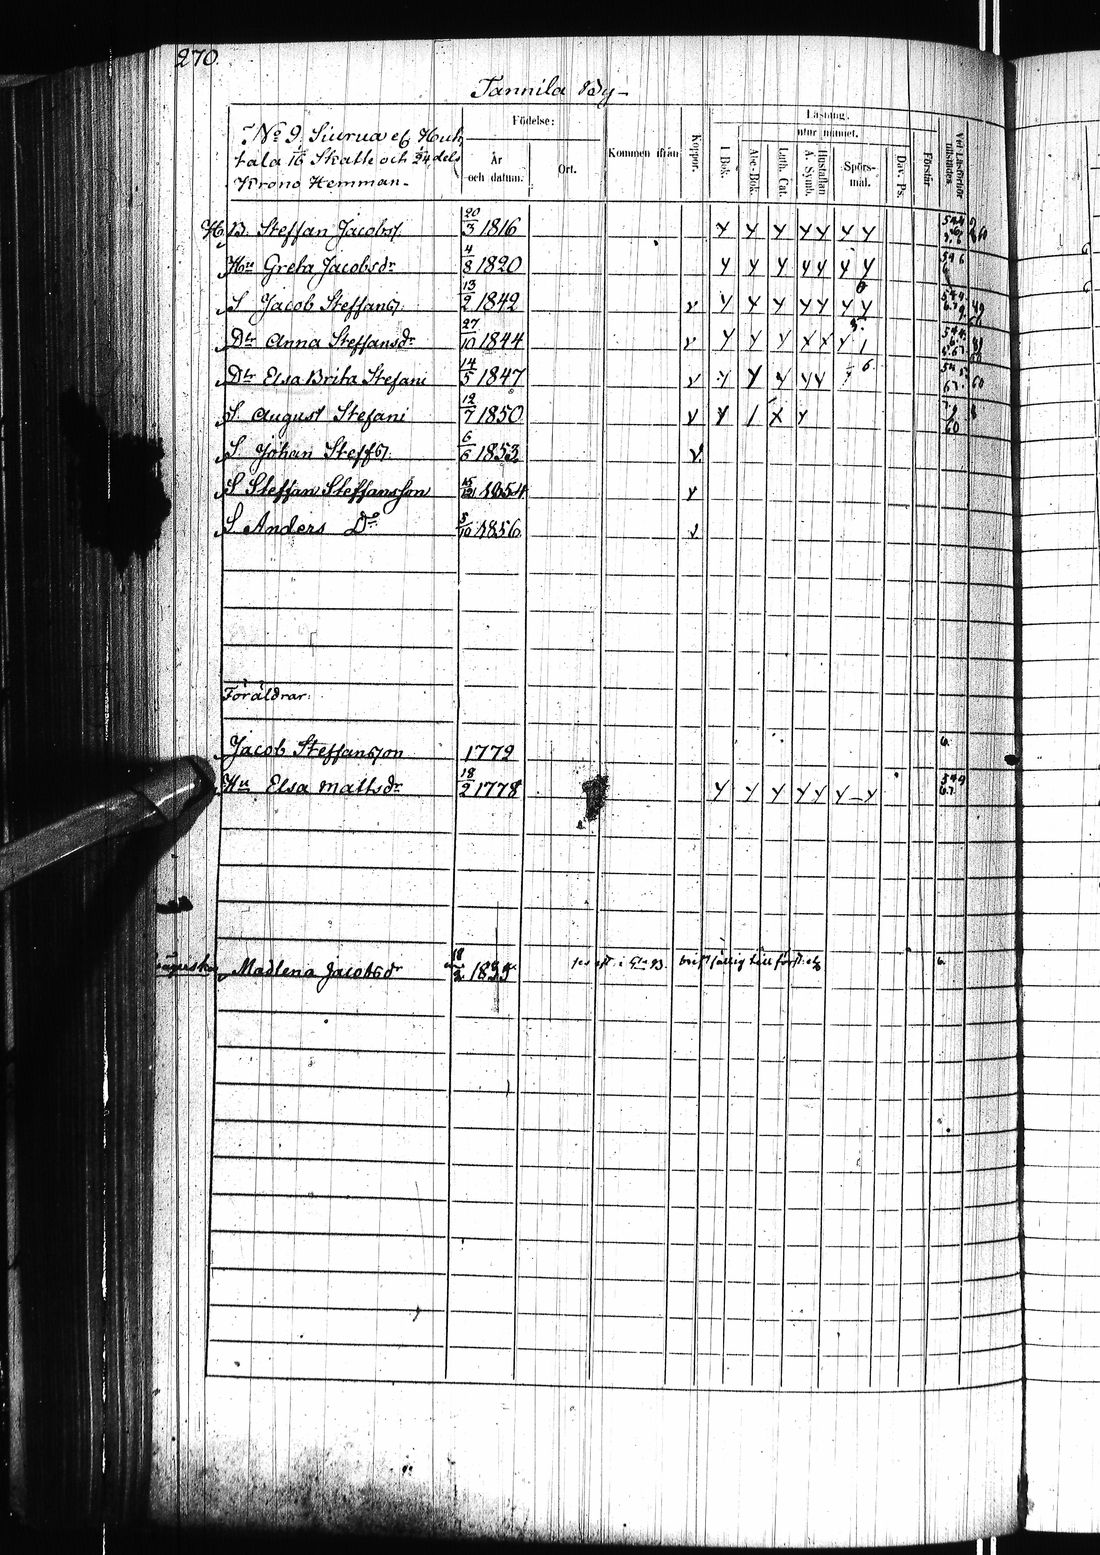 270
Tannila By
No 9. Siurua el. Huh
tala 1/16 Skatte och 1/34 dels
Krono Hemman.
Födelse:
År
och datum.
Ort.
Kommen ifrån
Koppor.
Läsning.
utur minnet.
I Bok.
Abc-Bok.
Luth. Cat.
Hustaflan
A. Symb.
Spörs-
mål.
Dav. Ps.
Förstår
Vid Läsförhör
tillstädes
B. Steffan Jacobss 20/3 1816 y y y y y y y
Hu Greta Jacobsdr 4/8 1820 y y y y y y y
S Jacob Steffanss 13/2 1842 v y y y y y y y
Dtr Anna Steffansdr 27/10 1844 v y y y x x
Dtr Elsa Brita Stefani 14/5 1847 v y y y y y
S. August Stefani 12/7 1850 v y / x y
S. Johan Steffss 6/6 1853 v
S Steffan Steffansson 15/12 1854 v
S Anders Do 5/10 1856 v
Föräldrar:
Jacob Steffansson 1772 6.
Hu Elsa Mattsdr 18/2 1778 y y y y y y y
Madlena Jacobsdr 1835